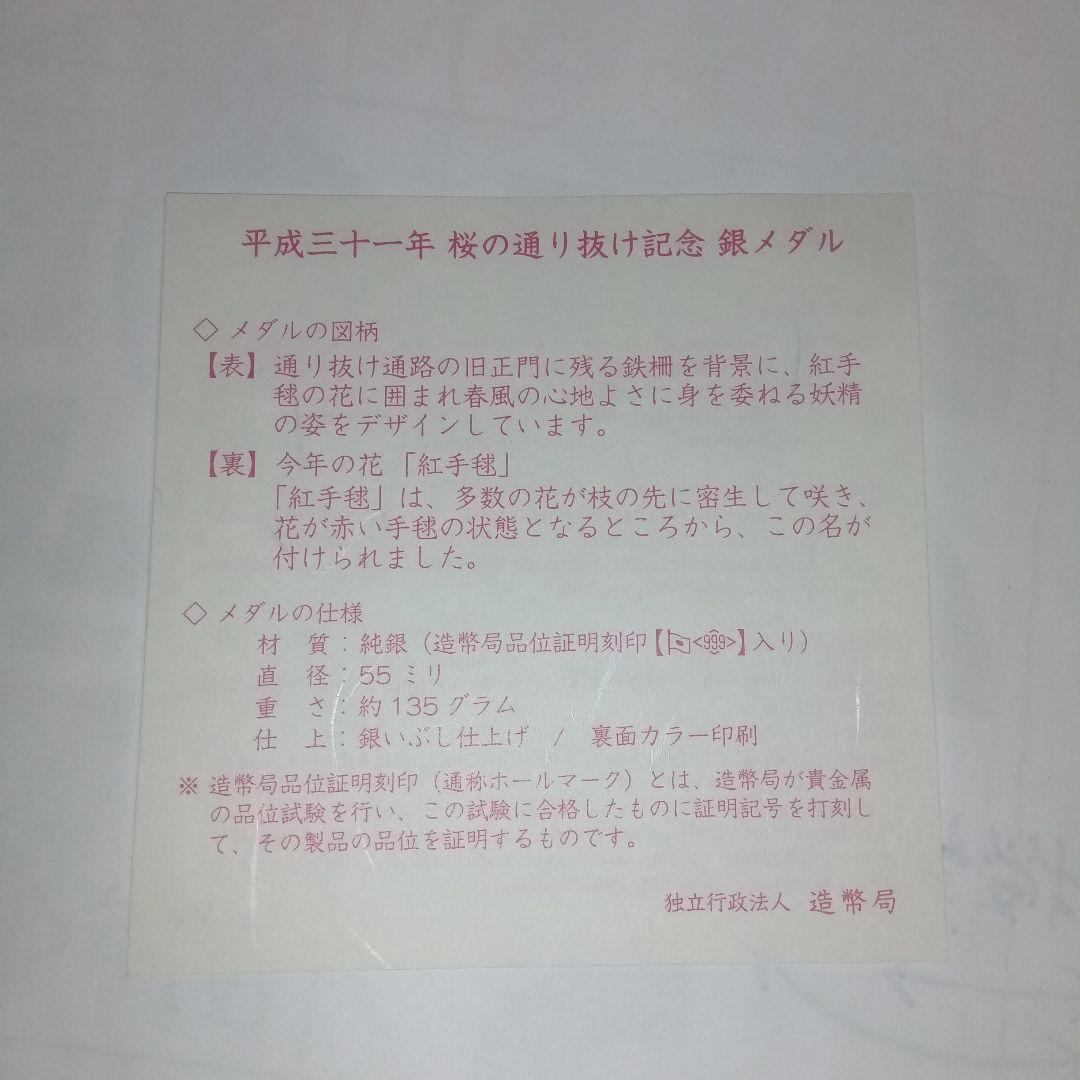 平成三十一年 桜の通り抜け記念 銀メダル
◇ メダルの図柄
【表】通り抜け通路の旧正門に残る鉄柵を背景に、紅手
毬の花に囲まれ春風の心地よさに身を委ねる妖精
の姿をデザインしています。
【裏】今年の花 「紅手毬」
「紅手毬」は、多数の花が枝の先に密生して咲き、
花が赤い手毬の状態となるところから、この名が
付けられました。
◇ メダルの仕様
材　質：純銀（造幣局品位証明刻印【<999>】入り）
直　径：55 ミリ
重　さ：約 135 グラム
仕　上：銀いぶし仕上げ　/　裏面カラー印刷
※ 造幣局品位証明刻印（通称ホールマーク）とは、造幣局が貴金属
の品位試験を行い、この試験に合格したものに証明記号を打刻し
て、その製品の品位を証明するものです。
独立行政法人 造幣局